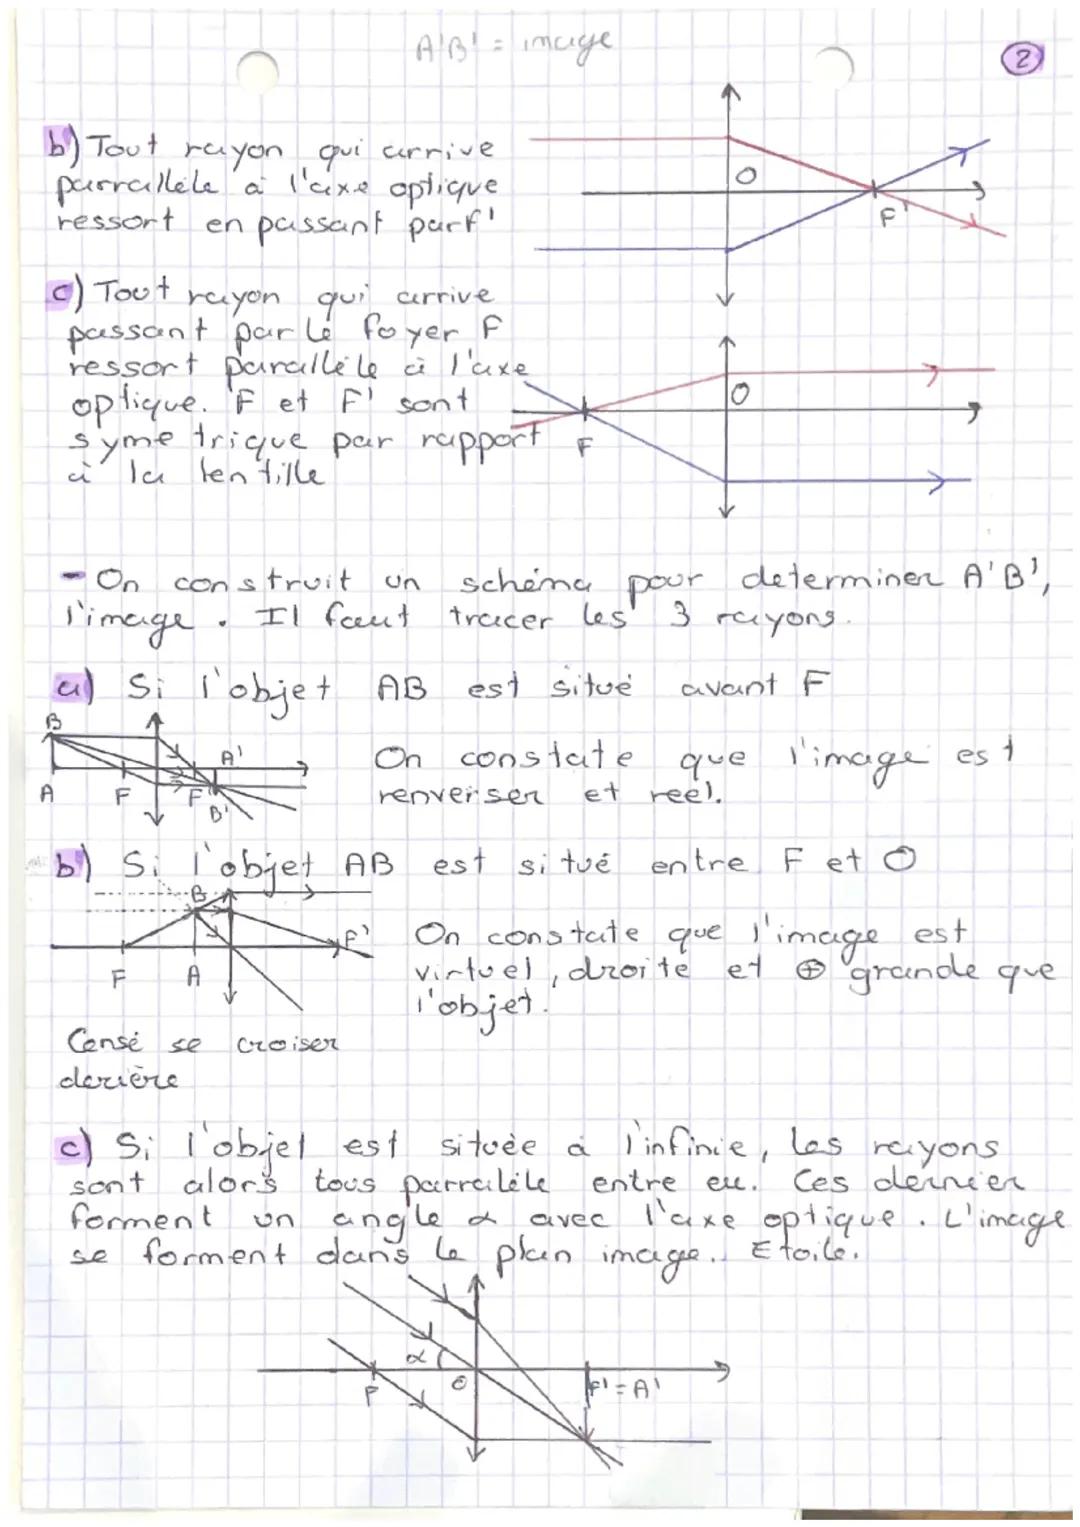 A'B' = image
2
b) Tout rayon qui arrive
parrallèle à l'axe optique
ressort en passant par f'
O
F'
c) Tout rayon qui arrive
passant par le foyer F
ressort parallèle à l'axe
optique. F et F' sont
symetrique par rapport
à la lentille
O
F
- On construit un schéma pour determiner A'B',
l'image. Il faut tracer les 3 rayons.
a) Si l'objet AB est situé avant F
B
A'
A F F' B'
On constate que l'image est
renverser et reel.
b) Si l'objet AB est situé entre F et O
B
F'
F A
On constate que l'image est
virtuel, droite et ⊕ grande que
l'objet.
Censé se croiser
derière
c) Si l'objet est située à l'infinie, les rayons
sont alors tous parralèle entre eu. Ces dernier
forment un angle α avec l'axe optique. L'image
se forment dans le plan image. Etoile.
α
F O F' = A'